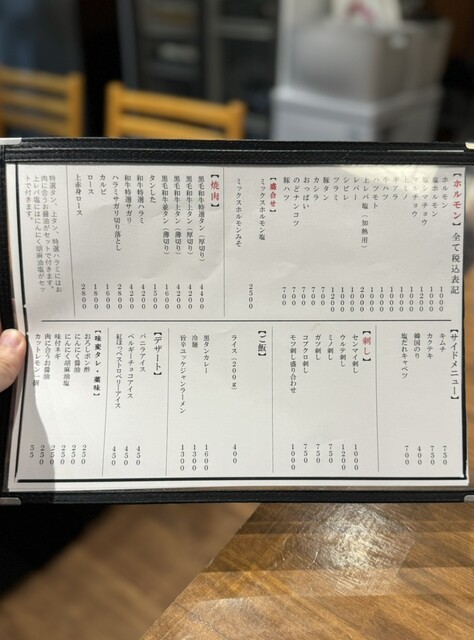 【ホルモン】全て税込表記
ホルモン
塩ホルモン
塩シマチョウ
マルチョウ
ギアラ
牛ハツ
ハツモト
上レバー塩（加熱用）
レバー
シビレ
ツラミ
豚タン
カシラ
おっぱい
のどナンコツ
豚ハツ
700
700
700
【盛合せ】
ミックスホルモン塩
ミックスホルモンみそ
2500
【焼肉】
黒毛和牛特選タン（厚切り） 4400
黒毛和牛上タン（厚切り） 4200
黒毛和牛並タン（薄切り） 1600
タンした
和牛特選ハラミ
和牛特選サガリ
ハラミサガリ切り落とし
カルビ 1600
ロース 1800
上赤身ロース 2800
特選タン、上タン、特選ハラミにはお
肉に合うお醤油がセットで付きます。
上レバー塩にはにんにく胡麻油塩がセッ
トで付きます。
【サイドメニュー】
キムチ 750
カクテキ 750
韓国のり 400
塩だれキャベツ 700
【刺し】
センマイ刺し 1000
ウルテ刺し 1200
ミノ刺し 750
ガツ刺し 750
コブクロ刺し 750
モツ刺し盛り合わせ 1000
【ご飯】
ライス（200g） 400
黒タンカレー 1600
冷麺 1300
旨辛ユッケジャンラーメン 1300
【デザート】
バニラアイス 450
ベルギーチョコアイス 450
紅ほっぺストロベリーアイス 450
【味変タレ・薬味】
おろしポン酢 250
にんにく醤油 250
にんにく胡麻油塩 250
味付ネギ 250
肉に合うお醤油 250
カットレモン一個 55